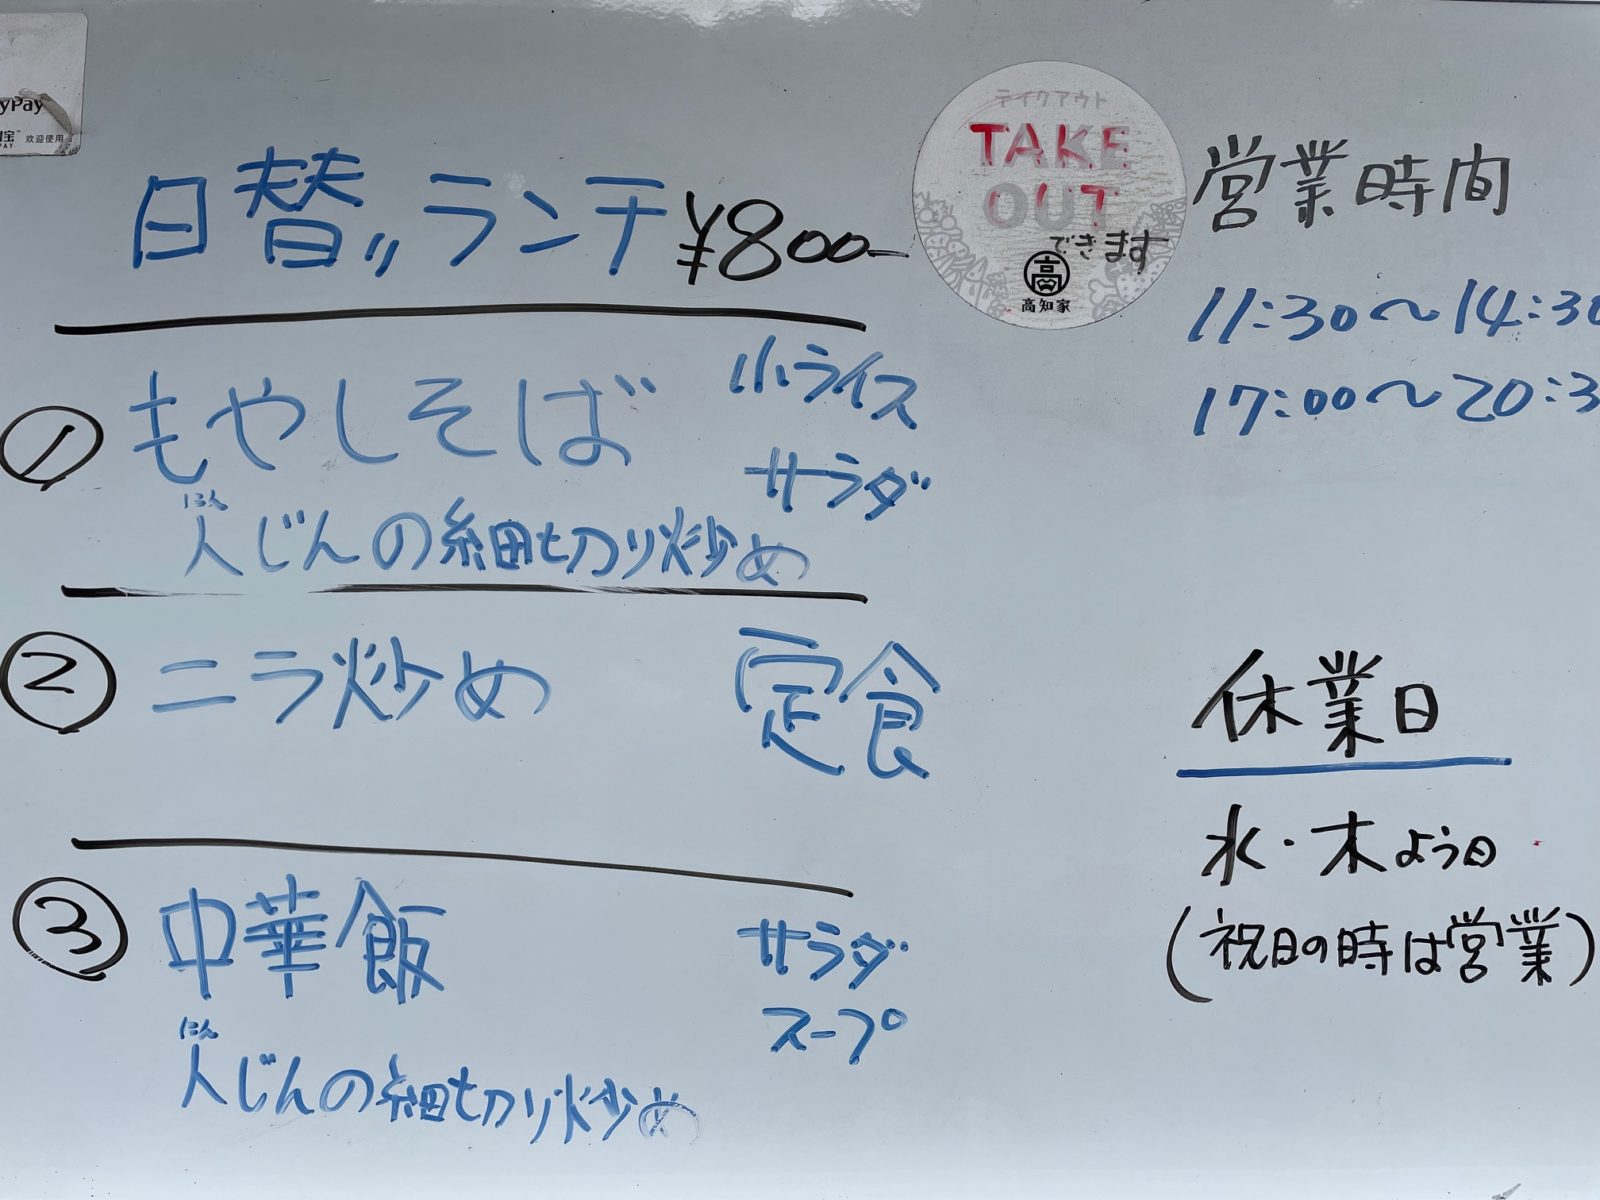 yPay
宝
PAY
欢迎使用
日替り ランチ ¥800-
① もやしそば 小ライス
サラダ
にん
人じんの細切り炒め
② ニラ炒め 定食
③ 中華飯 サラダ
スープ
にん
人じんの細切り炒め
テイクアウト
TAKE
OUT
できます
高
高知家
営業時間
11:30〜14:30
17:00〜20:3
休業日
水・木よう日
(祝日の時は営業)